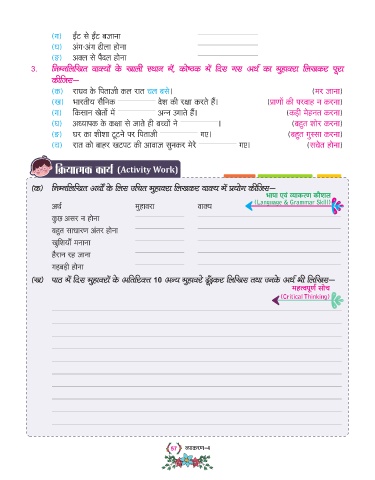 (ग) ईंट से ईंट बजाना
(घ) अंग-अंग ढीला होना
(ङ) अक्ल से पैदल होना
3. निम्नलिखित वाक्यों के खाली स्थान में, कोष्ठक में दिए गए अर्थ का मुहावरा लिखकर पूरा
कीजिए—
(क) राघव के पिताजी कल रात चल बसे। (मर जाना)
(ख) भारतीय सैनिक देश की रक्षा करते हैं। (प्राणों की परवाह न करना)
(ग) किसान खेतों में अन्न उगाते हैं। (कड़ी मेहनत करना)
(घ) अध्यापक के कक्षा से जाते ही बच्चों ने । (बहुत शोर करना)
(ङ) घर का शीशा टूटने पर पिताजी गए। (बहुत गुस्सा करना)
(च) रात को बाहर खटपट की आवाज़ सुनकर मेरे गए। (सचेत होना)
क्रियात्मक कार्य (Activity Work)
(क) निम्नलिखित अर्थों के लिए उचित मुहावरा लिखकर वाक्य में प्रयोग कीजिए—
भाषा एवं व्याकरण कौशल
(Language & Grammar Skill)
अर्थ मुहावरा वाक्य
कुछ असर न होना
बहुत साधारण अंतर होना
खुशियाँ मनाना
हैरान रह जाना
गड़बड़ी होना
(ख) पाठ में दिए मुहावरों के अतिरिक्त 10 अन्य मुहावरे ढूँढ़कर लिखिए तथा उनके अर्थ भी लिखिए—
महत्वपूर्ण सोच
(Critical Thinking)
57 व्याकरण-4